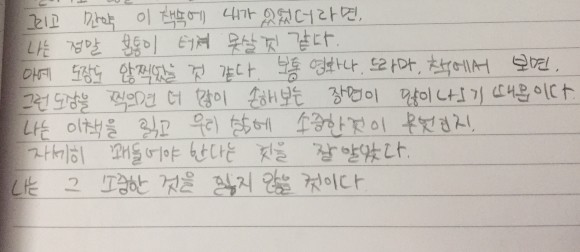 그리고 만약 이 책속에 내가 있었더라면.
나는 정말 분통이 터져 못살 것 같다.
아예 도장도 않찍었을 것 같다. 보통 영화나. 드라마. 책에서 보면.
그런 도장을 찍으면 더 많이 손해보는 장면이 많이 나오기 때문이다.
나는 이책을 읽고 우리 삶에 소중한것이 무엇인지.
자세히 깨들어야 한다는 것을 잘 알았다.
나는 그 소중한 것을 잃지 않을 것이다